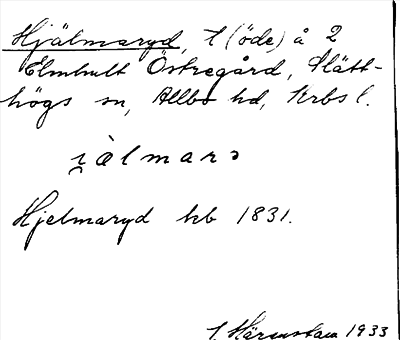 Hjälmaryd, t (öde) å 2
Elmhult Östregård, Slätt-
högs sn, Allbo hd, Krbs l.
Hjelmaryd kb 1831.
J. Härenstam 1933